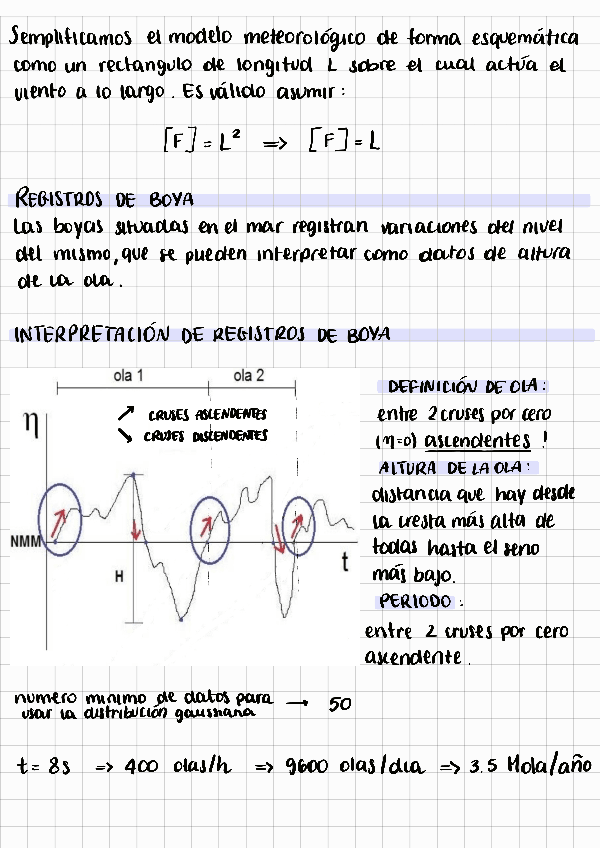 Semplificamos el modelo meteorológico de forma esquemática
como un rectangulo de longitud L sobre el cual actúa el
viento a lo largo. Es válido asumir:
[F] = L² => [F] = L
REGISTROS DE BOYA
Las boyas situadas en el mar registran variaciones del nivel
del mismo, que se pueden interpretar como datos de altura
de la ola.
INTERPRETACIÓN DE REGISTROS DE BOYA
ola 1 ola 2
η
↗ CRUSES ASCENDENTES
↘ CRUSES DISCENDENTES
NMM
H
t
DEFINICIÓN DE OLA:
entre 2 cruses por cero
(η=0) ascendentes !
ALTURA DE LA OLA:
distancia que hay desde
la cresta más alta de
todas hasta el seno
más bajo.
PERIODO:
entre 2 cruses por cero
ascendente.
numero minimo de datos para
usar la distribución gaussiana → 50
t = 8s => 400 olas/h => 9600 olas/dia => 3.5 Mola/año